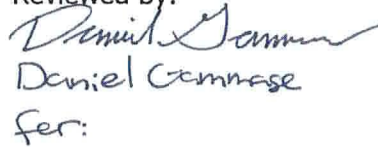 Reviewed by:
Daniel Gammase
Daniel Gammase
for: